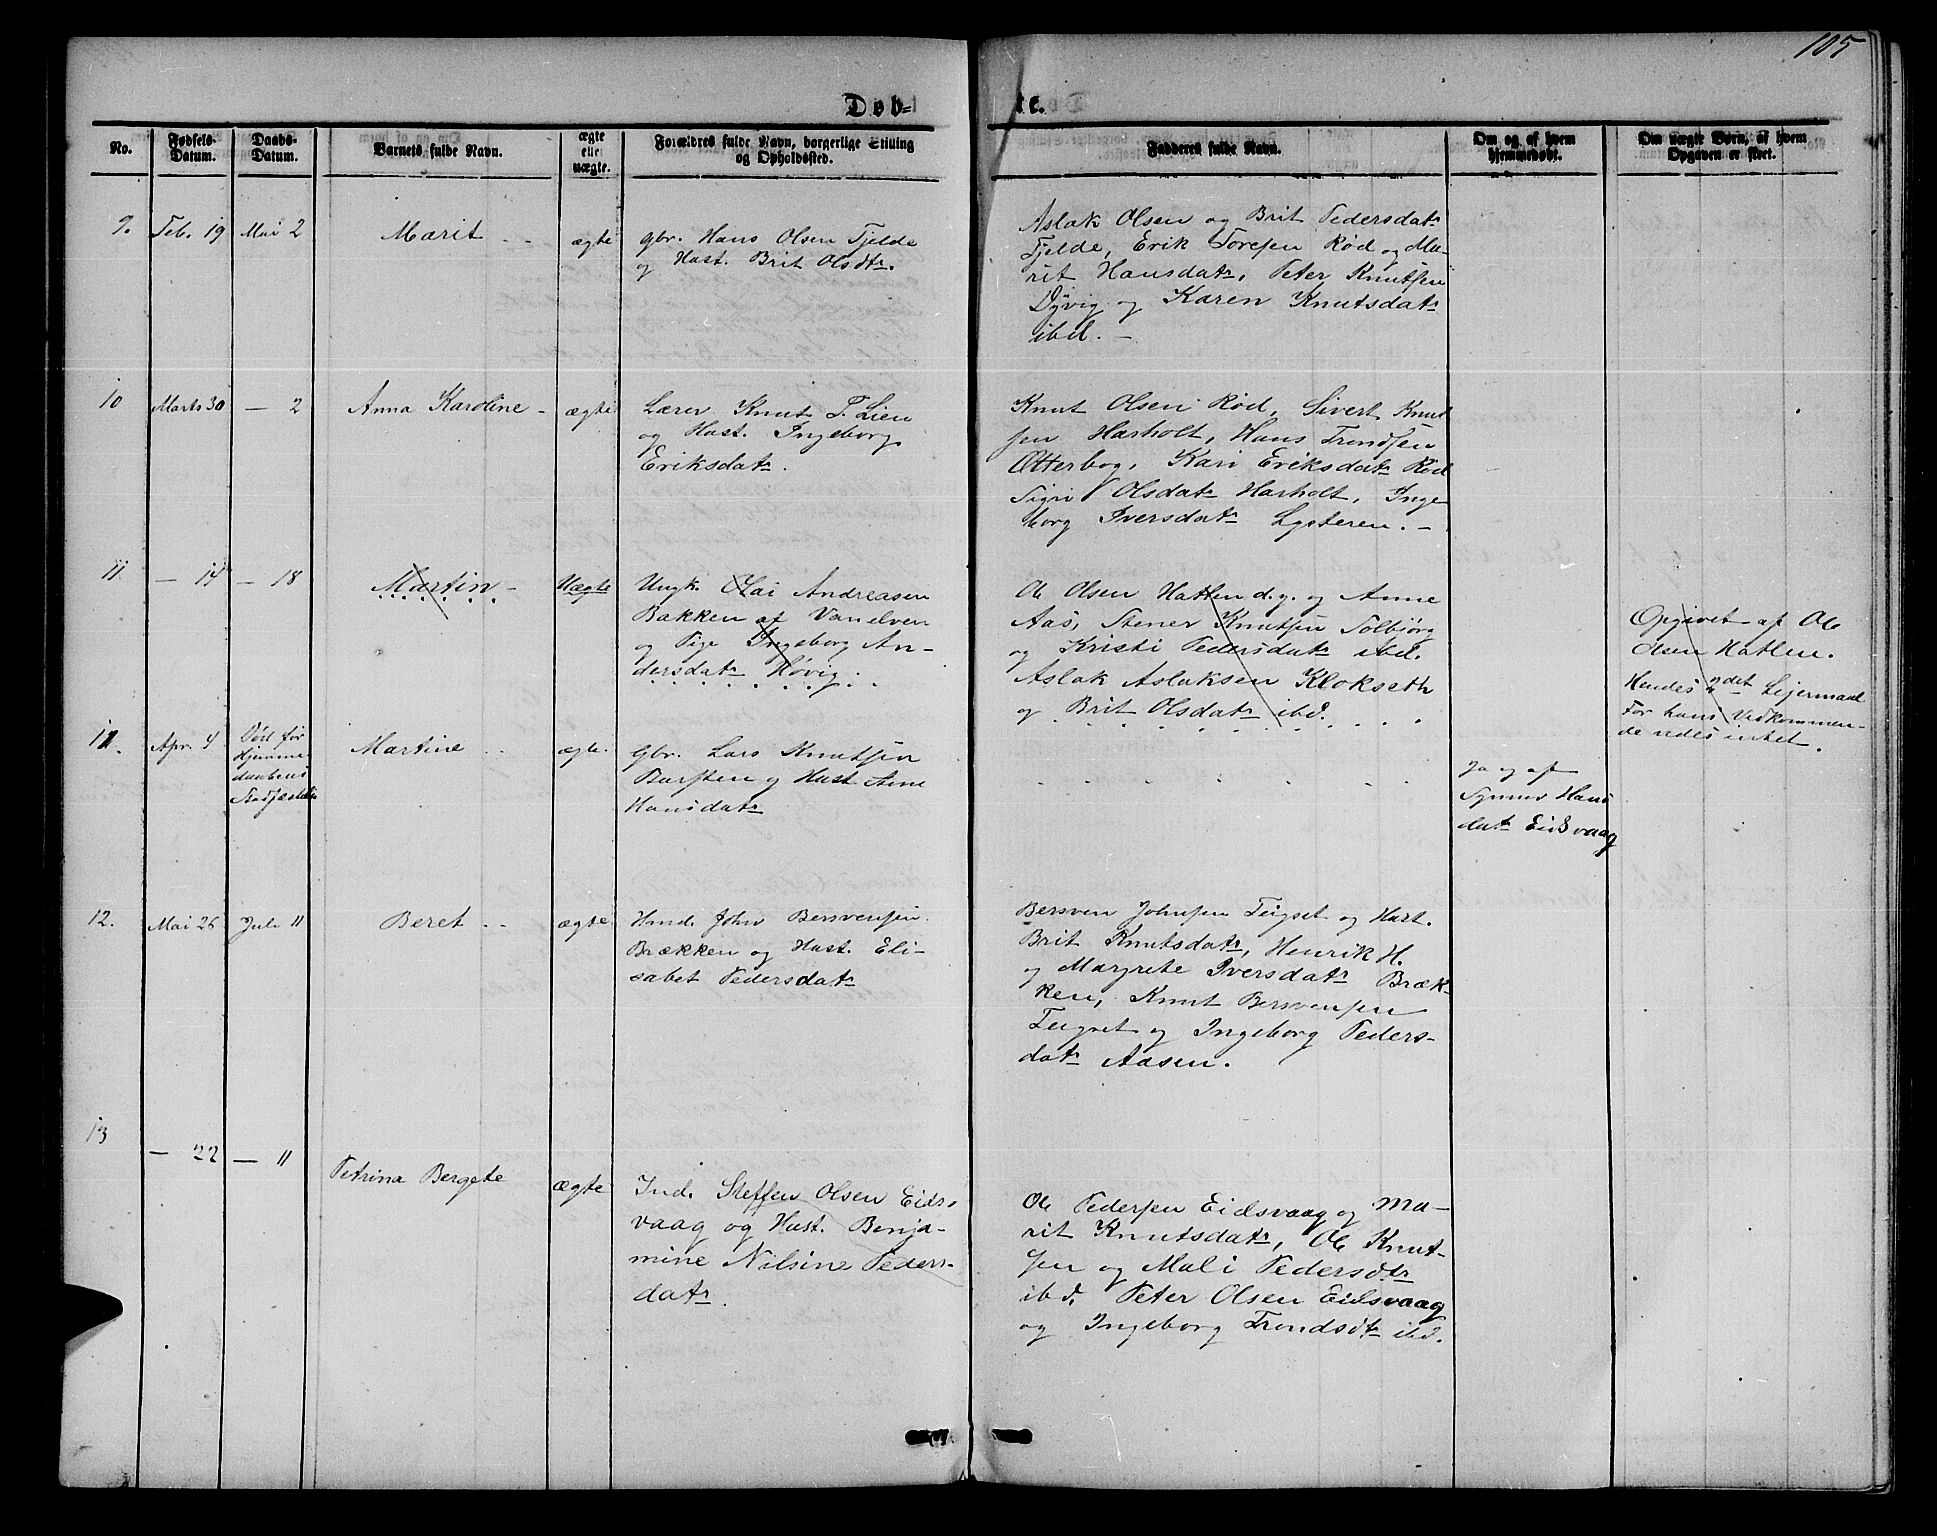 105
Døb-
te.
No.
Fødsels-
Datum.
Daabs-
Datum.
Barnets fulde Navn.
ægte
eller
uægte.
Forældres fulde Navn, borgerlige Stilling
og Opholdssted.
Fadderes fulde Navn.
Om og af hvem
hjemmedøbt.
Om uægte Børn, af hvem
Opgaven er skeet.
9. Feb. 19 Mai 2 Marit - - ægte
gbr. Hans Olsen Fjelde
og Hust. Brit Olsdtr.
Aslak Olsen og Brit Pedersdatr
Fjelde, Erik Toresen Rød og Ma-
rit Hansdatr, Peter Knutsen
Dyvig og Karen Knutsdatr
ibd. -
10 Marts 30 — 2 Anna Karoline - ægte
Lærer Knut P. Lien
og Hust. Ingeborg
Eriksdatr.
Knut Olsen Rød, Sivert Knut
sen Harholt, Hans Trondsen
Otterbog, Kari Eriksdatr Rød
Sigri Olsdatr Harholt, Inge
borg Iversdatr Lysteren. -
11. — 14 — 18 Martin - Uægte
Ungk. Olai Andreasen
Bakken af Vanelven
og Pige Ingeborg An-
dersdatr Høvig.
Ole Olsen Hatlen d.y. og Anne
Aas, Stener Knutsen Solbjørg
og Kristi Pedersdatr ibd.
Aslak Aslaksen Klokseth
og Brit Olsdatr ibd.
Opgivet af Ole
Olsen Hatlen.
Hendes 2det Leiermaal
For hans Vedkommen-
de vides intet.
11. Apr. 4
Død før
Hjemme
daabens
Stadfæstelse
Martine - - ægte.
Gbr. Lars Knutsen
Bursten og Hust. Ane
Hansdatr
Ja og af
Synnev Hans
datr Eidsvaag
12. Mai 26 Juli 11 Beret - - ægte
Hmd. John Bersvensen
Brækken og Hust. Eli-
sabet Pedersdatr
Bersven Johnsen Teigset og Hust.
Brit Knutsdatr, Henrik H.
og Margrete Iversdatr Bræk-
ken, Knut Bersvensen
Teigset og Ingeborg Peders-
datr Aasen.
13 — 22 — 11 Petrina Bergete ægte
Ind. Steffen Olsen Eids-
vaag og Hust. Benja-
mine Nilsine Peders-
datr.
Ole Pedersen Eidsvaag og Ma-
rit Knutsdatr, Ole Knut-
sen og Mali Pedersdtr
ibd. Peter Olsen Eidsvaag
og Ingeborg Trondsdtr ibd.